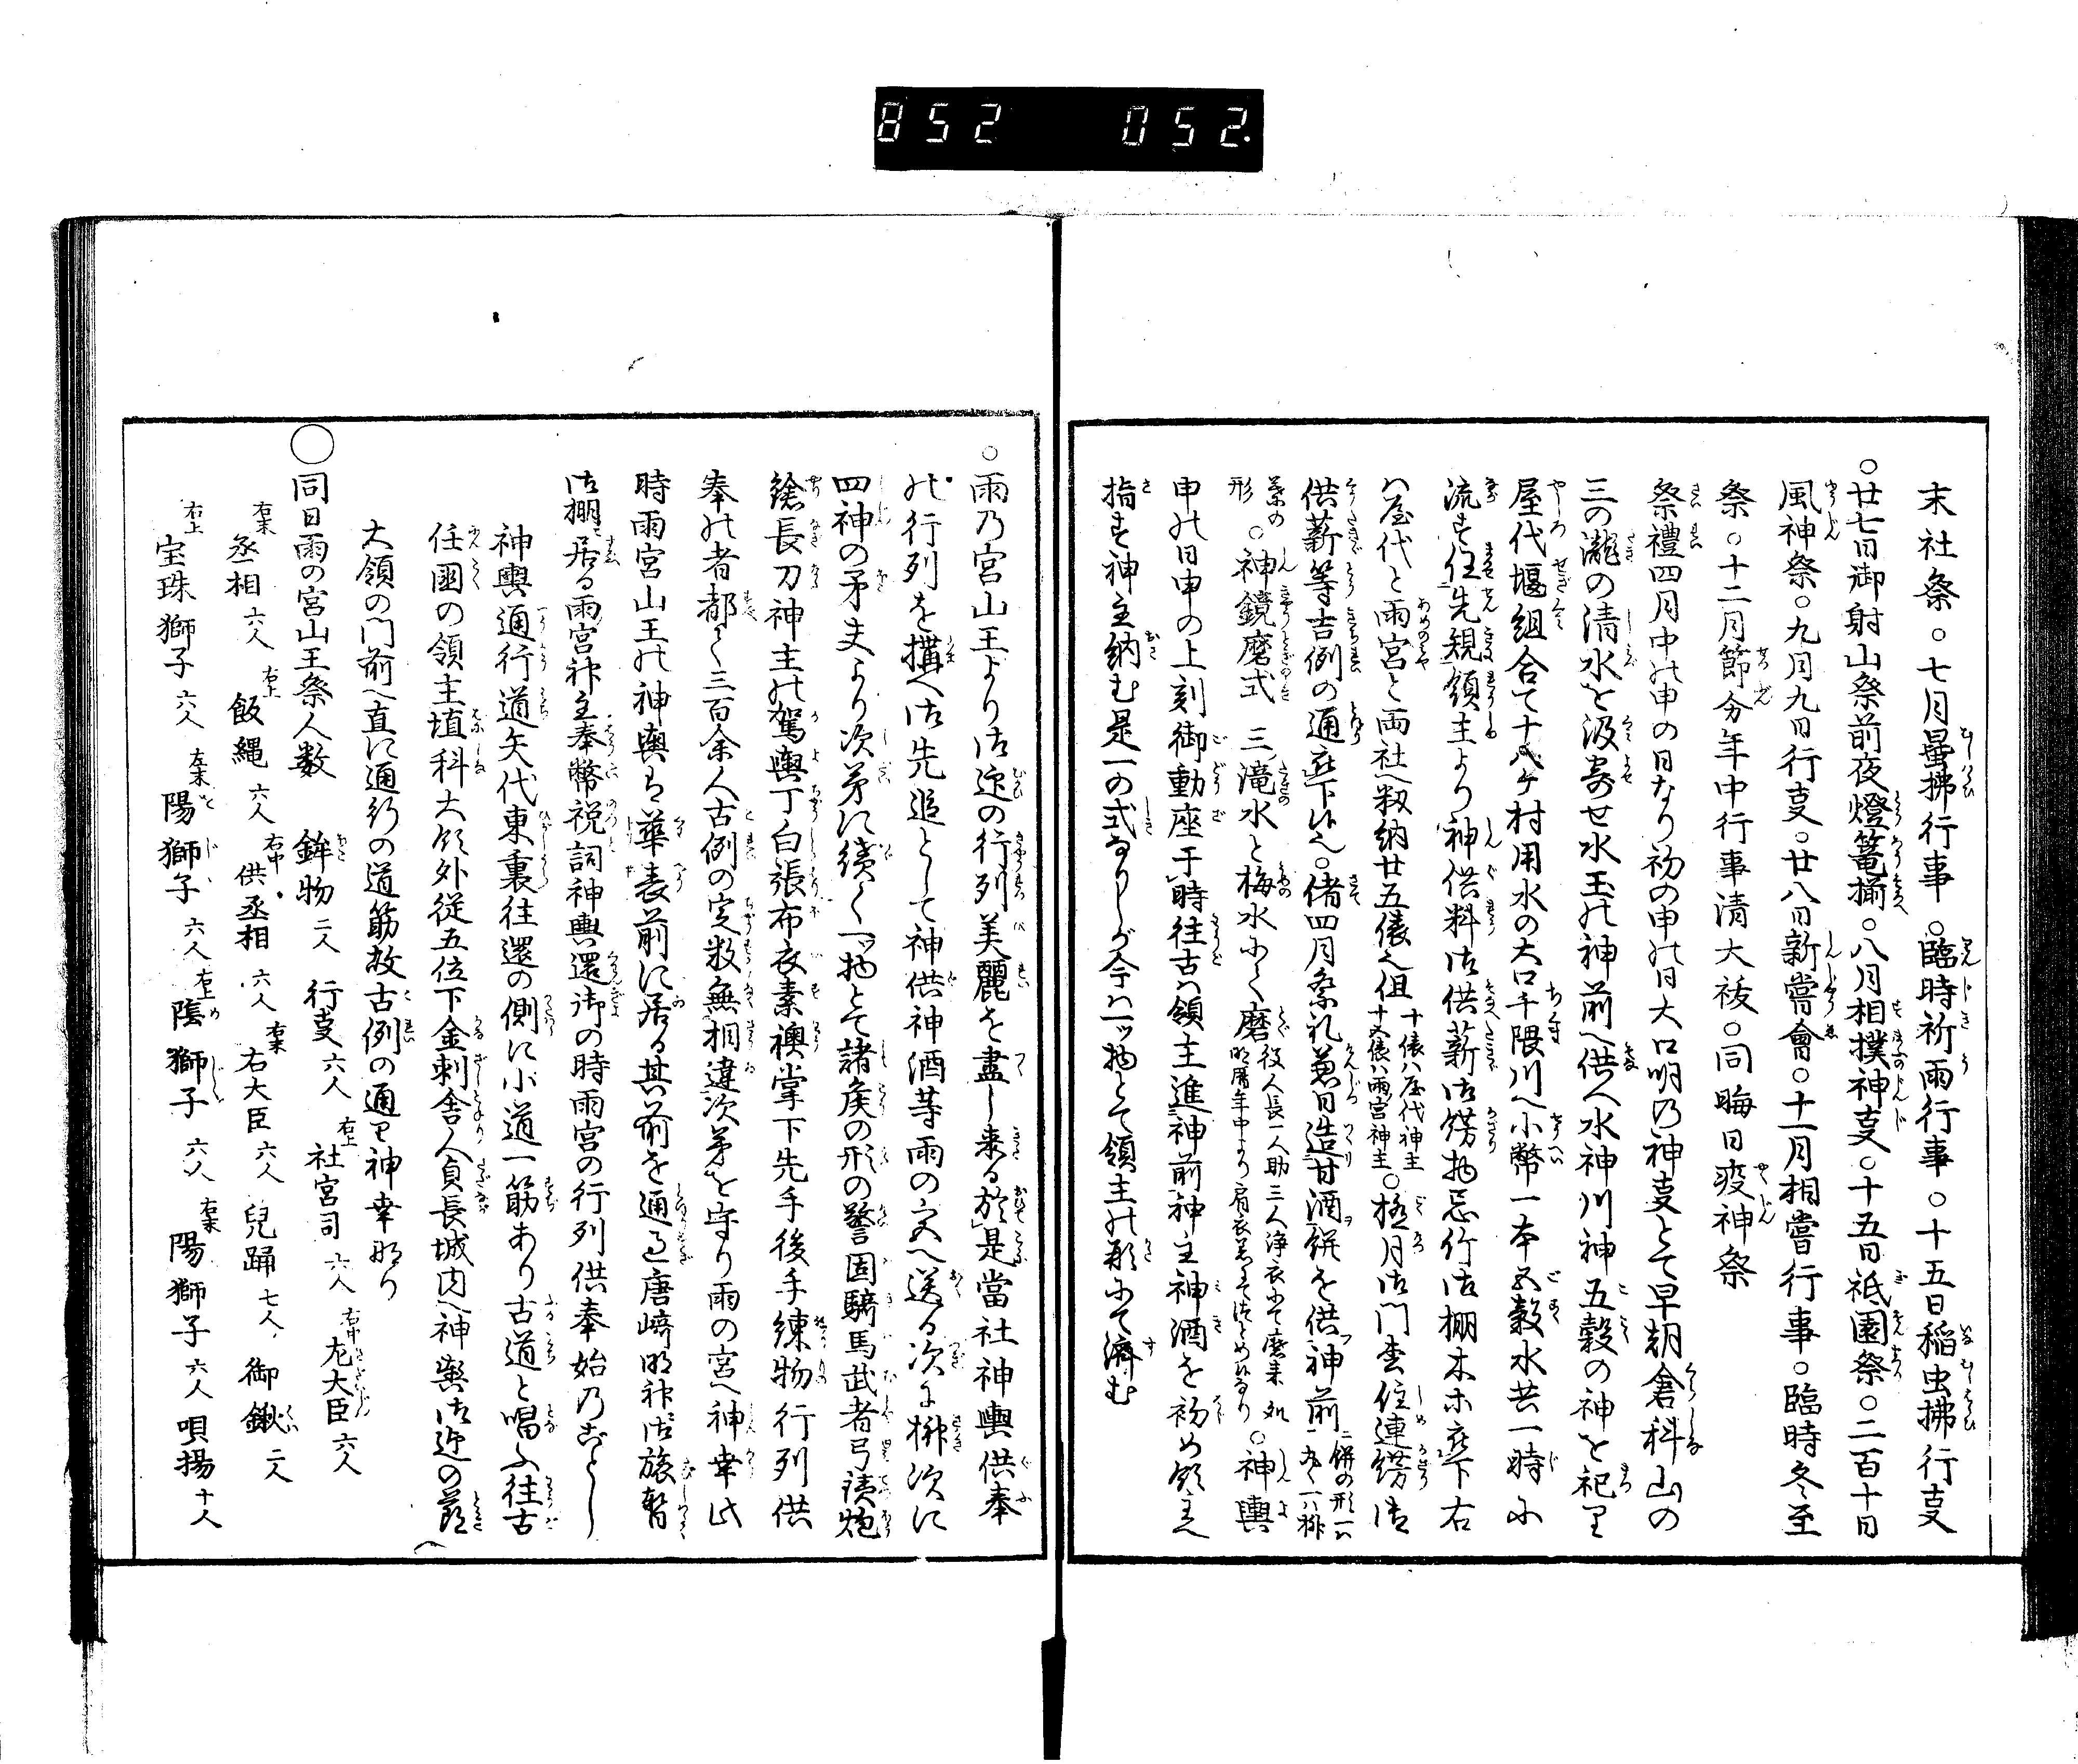 852 052.
末社祭○七月虽拂行事○臨時祈雨行事○十五日稲虫拂行㕝
○廿七日御射山祭前夜燈篭揃○八月相撲神㕝○十五日祗園祭○二百十日
風神祭○九月九日行㕝○廿八日新嘗會○十一月相嘗行事○臨時冬至
祭○十二月節分年中行事清大祓○同晦日疫神祭
祭禮四月中之申の日なり初の申之日大口明乃神㕝とて早朝倉科山の
三の瀧の清水を汲寄せ水玉之神前へ供へ水神川神五穀の神を祀り
屋代堰組合て十八ケ村用水の大口千隈川へ小幣一本五穀水共一時に
流す往先規領主より神供料御供薪御餝物忌竹御棚木等被下右
ハ屋代と雨宮と両社へ籾納廿五俵之但十俵ハ屋代神主十五俵ハ雨宮神主○極月御門松注連餝
供薪等吉例の通被下候○偖四月祭礼兼日造甘酒餅を供神前
形○神鏡磨式三滝水と梅水にて磨役人長一人助三人浄衣にて磨来
申之日申の上刻御動座于時往古ハ領主進神前神主神酒を初め領主へ
指す神主納む是一の式なりしが今ハ一ツ物とて領主之形にて済む
○雨乃宮山王より御迎の行列美麗を盡し来る於是當社神輿供奉
之行列を搆へ御先追として神供神酒等雨の宮へ送る次に榊次に
四神の矛夫より次第に續く一ツ物とて諸矦の形の警固騎馬武者弓鉄炮
鎗長刀神主之駕輿丁白張布衣素襖掌下先手後手練物行列供
奉之者都て三百余人古例の定数無相違次第を守り雨の宮へ神幸此
時雨宮山王之神輿は華表前に居る其前を通る唐﨑明神御旅暫
御棚に居る雨宮神主奉幣祝詞神輿還御の時雨宮の行列供奉始乃ごとし
神輿通行道矢代東裏往還の側に小道一筋あり古道と唱ふ往古
任國の領主埴科大領外従五位下金刺舎人貞長城内へ神輿御迎の節
大領の門前へ直に通行の道筋故古例の通り神幸なり
○同日雨の宮山王祭人数 鉾物二人 行㕝六人 右上社宮司六人 右中左大臣六人
右末丞相六人 右上飯縄六人 右中供丞相六人 右末右大臣六人 兒踊七人 御鍬二人
右上宝珠獅子六人 右末陽獅子六人 右上陰獅子六人 右末陽獅子六人 唄揚十人